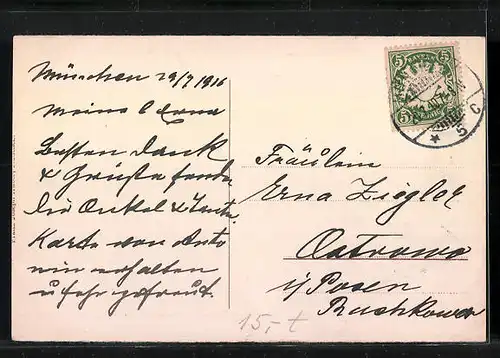 München 29/7 1916
Meine l. Erna
Besten Dank
& Grüsse sendet
Dir Onkel & Tante.
Karte von Auto
wir erhalten
u sehr gefreut.
Fräulein
Erna Ziegler
Ostrowo
i/ Posen
15,- t
BAYERN
5
5
5 C